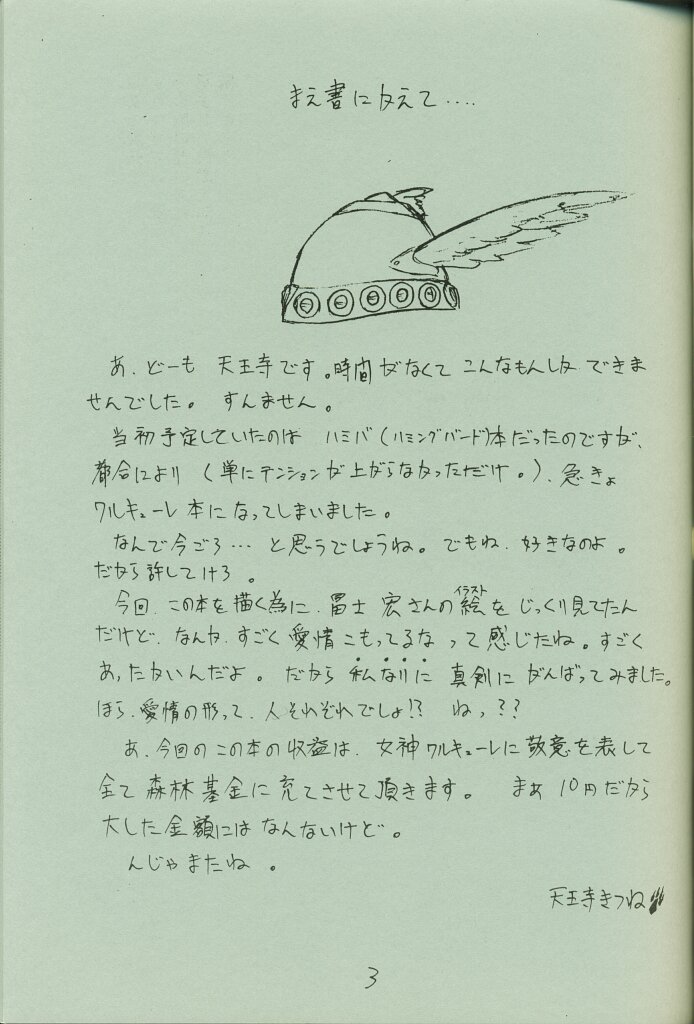 まえ書に代えて‥‥
あ、どーも 天王寺です。時間がなくて こんなもんしか できま
せんでした。 すんません。
当初予定していたのは ハミバ(ハミングバード)本だったのですが、
都合により (単にテンションが上がらなかっただけ。)、急きょ
ワルキューレ本になってしまいました。
なんで今ごろ…と思うでしょうね。でもね、好きなのよ。
だから許してけろ。
今回、この本を描く為に、冨士 宏さんの絵(イラスト)を じっくり見てたん
だけど、なんか、すごく愛情こもってるなって感じたね。すごく
あったかいんだよ。だから 私なりに 真剣に がんばってみました。
ほら、愛情の形って、人それぞれでしょ!? ねっ??
あ、今回のこの本の収益は、女神ワルキューレに敬意を表して
全て 森林基金に充てさせて頂きます。 まぁ 10円だから
大した金額にはなんないけど。
んじゃまたね。
天王寺きつね
3